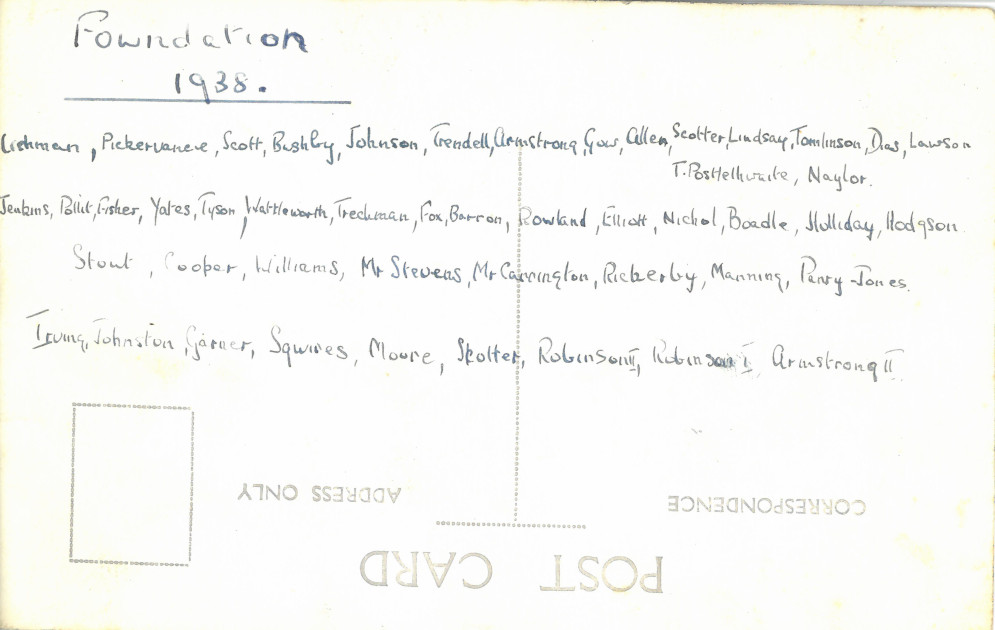 Foundation
1938.
Pickervance, Scott, Bushby, Johnson, Trendell, Armstrong, Gow, Allen, Scotter, Lindsay, Tomlinson, Dias, Lawson
T. Postlethwaite, Naylor.
Jenkins, Pollit, Fisher, Yates, Tyson, Wattleworth, Trechman, Fox, Barron, Rowland, Elliott, Nichol, Boadle, Holliday, Hodgson.
Stout, Cooper, Williams, Mr Stevens, Mr Carrington, Rickerby, Manning, Parry-Jones.
Irving, Johnston, Garner, Squires, Moore, Robinson II, Robinson I, Armstrong II
ADDRESS ONLY
CORRESPONDENCE
POST CARD